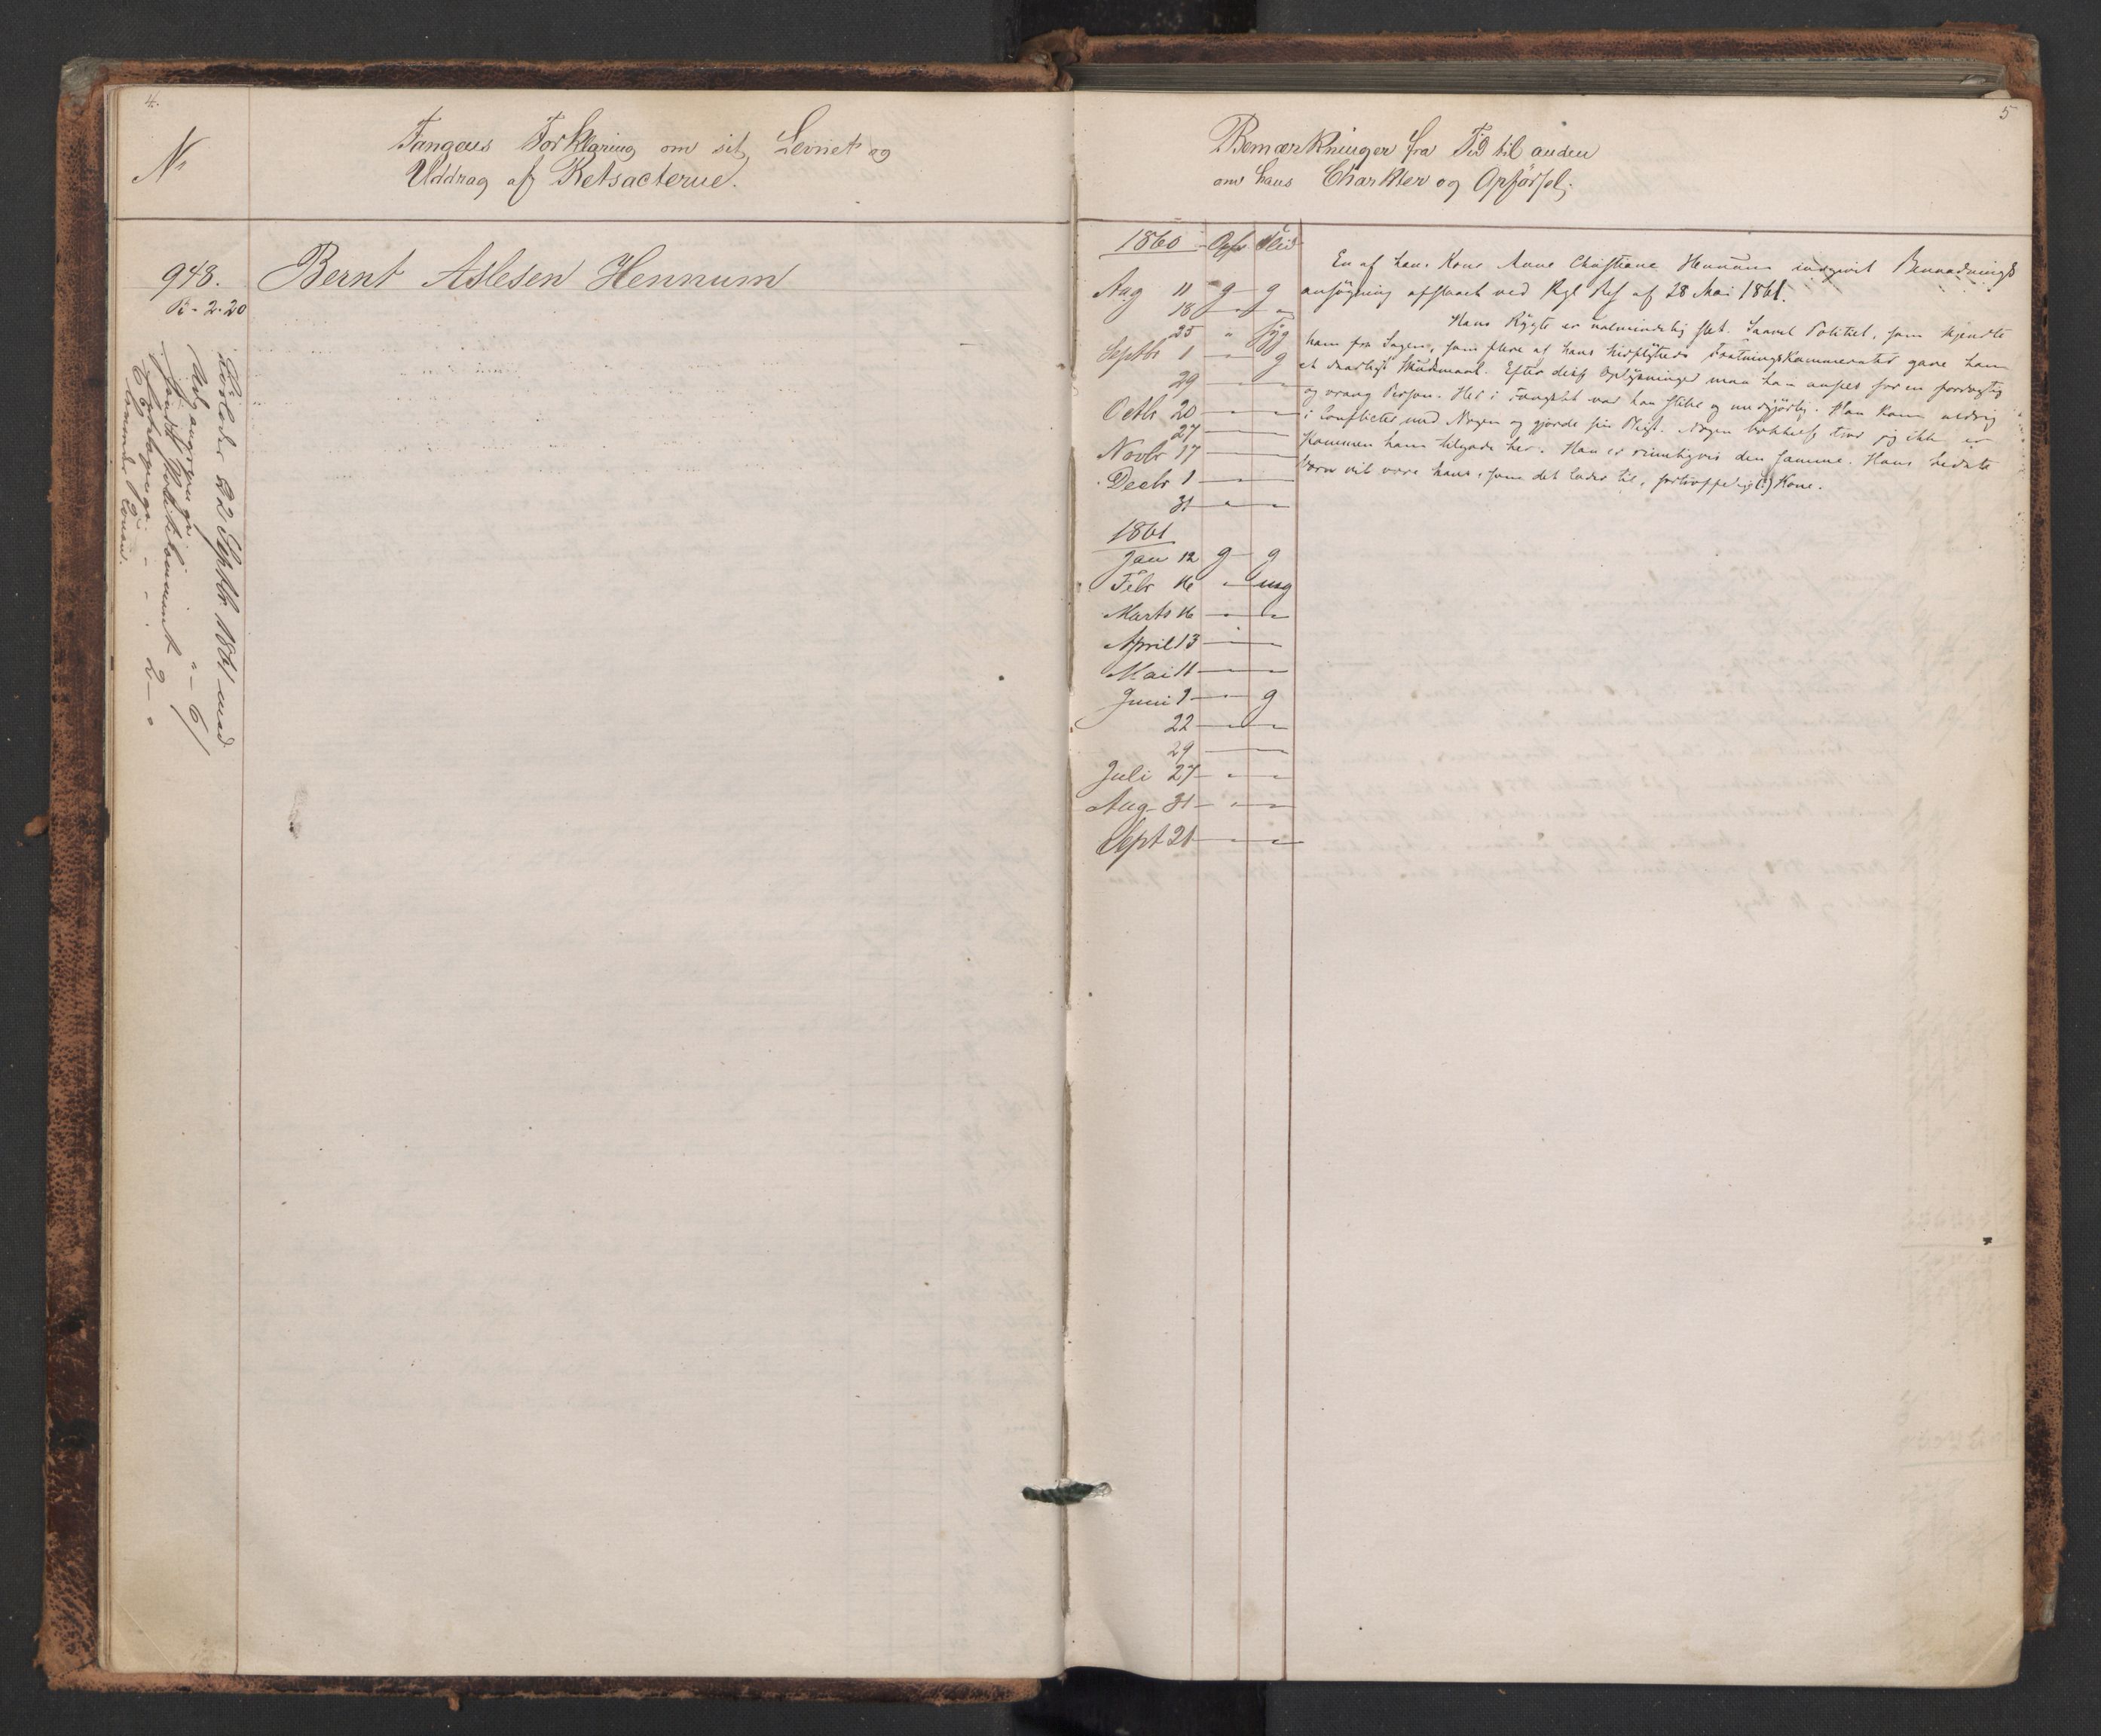 4.
No
Fangens Forklaring om sit Levnet og
Uddrag af Retsacterne.
948.
B - 2.20
Bernt Aslesen Hennum
Löslades 22 Septbr 1861 med
Udgangspenge " - 61
Politi
Oplagspenge - - - 2 - "
5
Bemærkninger fra Tid til anden
om hans Charkter og Opförsel;
1860 Opf. Flid
Aug 11 g g
18 " "
25 " Tfg
Septbr 1 " g
29 " "
Octbr 20 " "
27
Novbr 17
Decbr 1 "
31 " "
1861
Jan 12 g g
Febr 16 " mg
Marts 16 " "
April 13 "
Mai 11 " "
Juni 1 " g
22 " "
29
Juli 27 " "
Aug 31 " "
Sept 21 " "
En af hans Kone Anne Christiane Hennum indgivet Benaadnings
ansögning afslaaet ved Kgl Res af 28 Mai 1861.
Hans Rygte er ualmindelig slet. Saavel Politiet, som kjendte
ham fra Sagen, som flere af hans hidflyttede gave ham
et daarligt Skudsmaal. Efter disse Oplysninger maa han ansees for en
og vrang Person. Her i Fængslet var han stille og medgjörlig. Han kom aldrig
i Conflicter med Nogen og gjorde sin Pligt. Nogen tror jeg ikke er
kommen ham tilgode her. Han er rimeligvis den samme. Hans bedste
Værn vil være hans, som det lader til, (!) Kone.